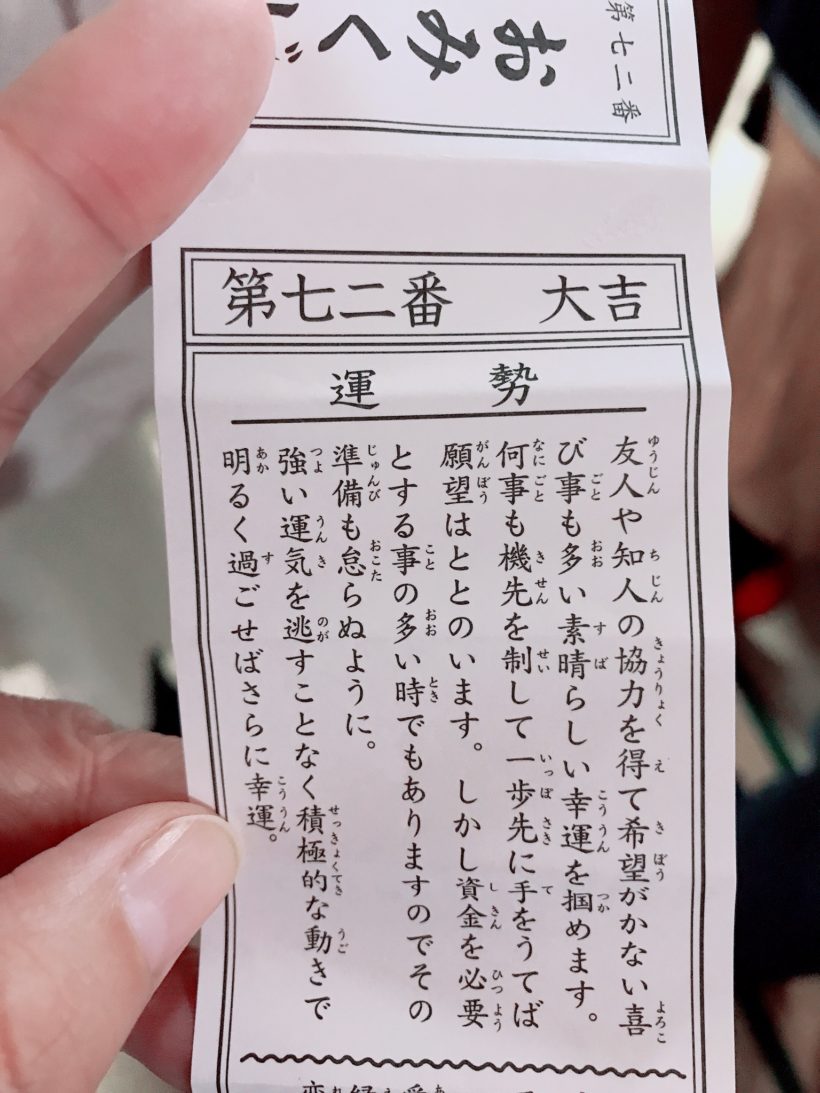 第七二番
おみく
第七二番　大吉
運勢
友人や知人の協力を得て希望がかない喜
び事も多い素晴らしい幸運を掴めます。
何事も機先を制して一歩先に手をうてば
願望はととのいます。しかし資金を必要
とする事の多い時でもありますのでその
準備も怠らぬように。
強い運気を逃すことなく積極的な動きで
明るく過ごせばさらに幸運。